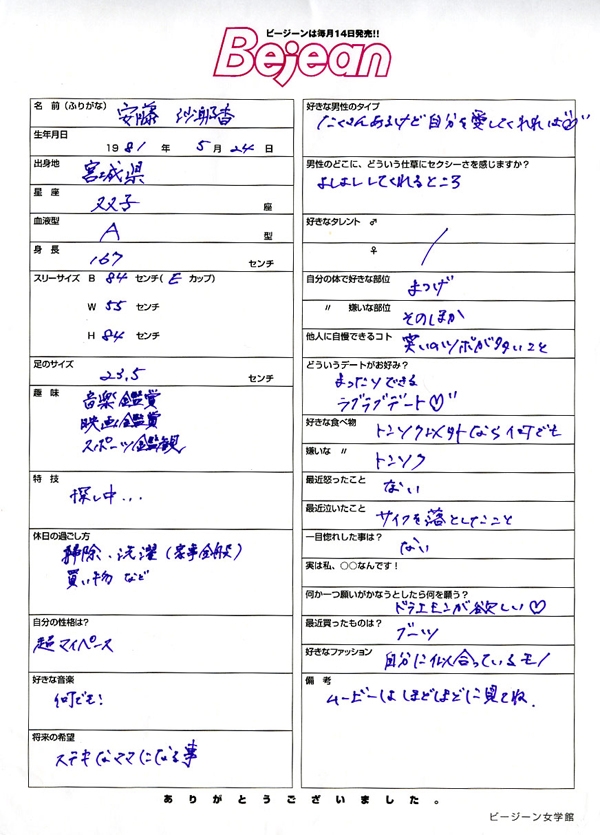 ビージーンは毎月14日発売!!
Bejean
名 前 (ふりがな) 安藤 沙耶香
生年月日
1981 年 5 月 24 日
出身地 宮城県
星 座 双子 座
血液型 A 型
身 長 167 センチ
スリーサイズ B 84 センチ( E カップ)
W 55 センチ
H 84 センチ
足のサイズ 23.5 センチ
趣 味 音楽鑑賞
映画鑑賞
スポーツ鑑観
特 技 探し中...
休日の過ごし方
掃除、洗濯 (家事全般)
買い物 など
自分の性格は?
超マイペース
好きな音楽
何でも!
将来の希望
ステキなママになる事
好きな男性のタイプ
たくさんあるけど自分を愛してくれれば♡
男性のどこに、どういう仕草にセクシーさを感じますか?
よしよししてくれるところ
好きなタレント ♂
♀
自分の体で好きな部位 まつげ
〃 嫌いな部位 そのほか
他人に自慢できるコト 笑いのツボが多いこと
どういうデートがお好み?
まったりできる
ラブラブデート♡
好きな食べ物 トンソク以外なら何でも
嫌いな 〃 トンソク
最近怒ったこと ない
最近泣いたこと サイフを落としたこと
一目惚れした事は? ない
実は私、○○なんです!
何か一つ願いがかなうとしたら何を願う?
ドラエモンが欲しい♡
最近買ったものは? ブーツ
好きなファッション 自分に似合っているモノ
備 考
ムービーはほどほどに見てね.
ありがとうございました。
ビージーン女学館